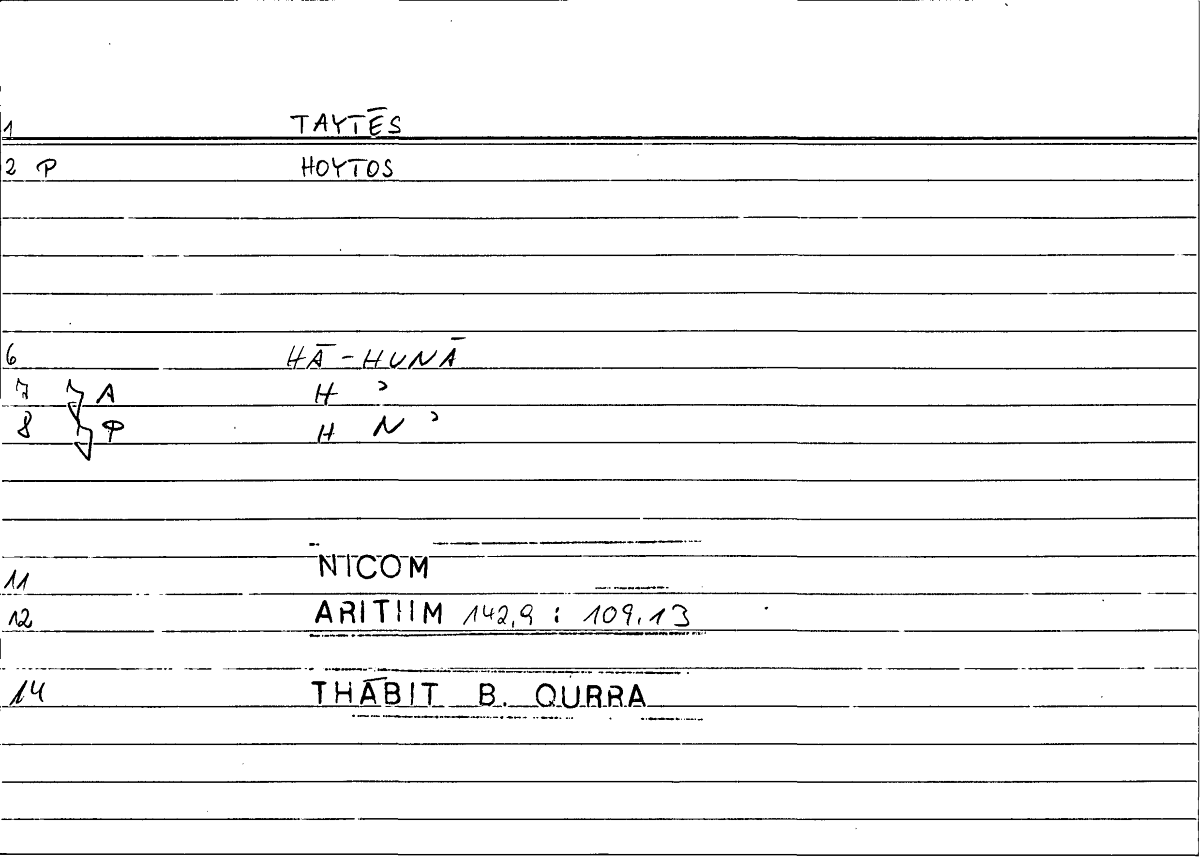 1 TAYTĒS
2 P HOYTOS
6 HĀ-HUNĀ
7 A H ʾ
8 P H N ʾ
11 NICOM
12 ARITHM 142,9 : 109,13
14 THĀBIT B. QURRA